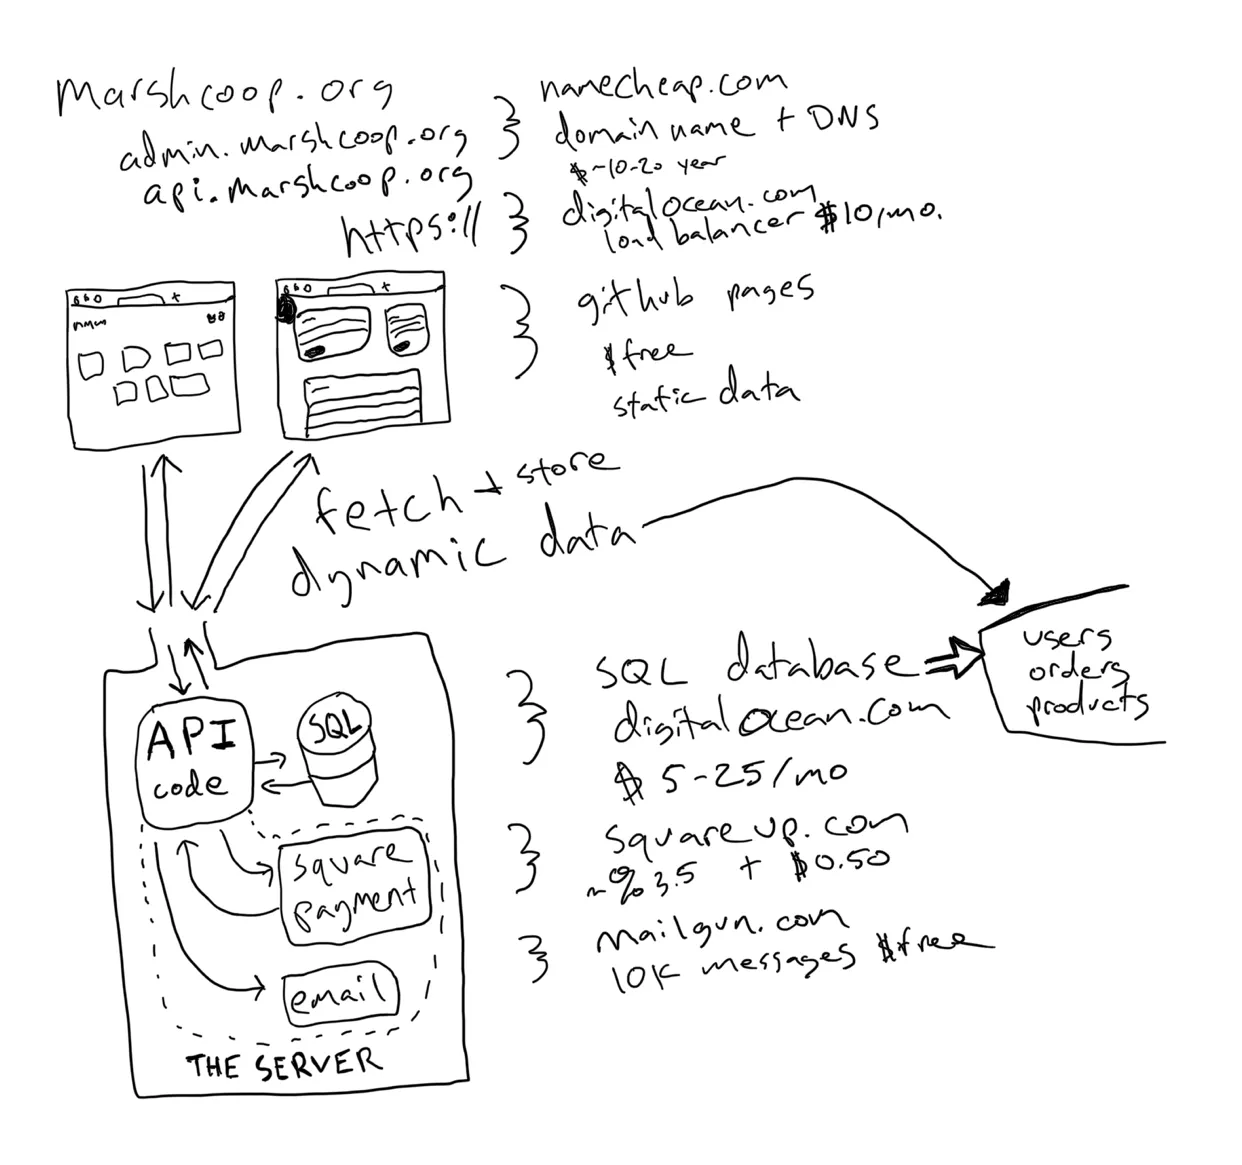 marshcoop.org
admin.marshcoop.org
api.marshcoop.org
https://
namecheap.com
domain name + DNS
$~10-20 year
digitalocean.com
load balancer $10/mo.
github pages
$free
static data
fetch + store
dynamic data
SQL database
digitalocean.com
$5-25/mo
users
orders
products
API
code
SQL
square
payment
email
THE SERVER
squareup.com
~%3.5 + $0.50
mailgun.com
10K messages $free